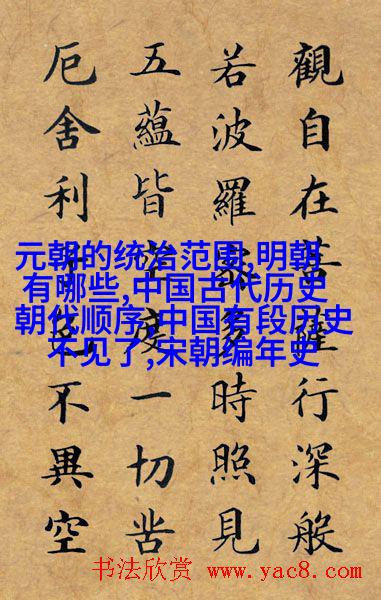 觀自在菩薩行深般
若波羅蜜多時照見
五蘊皆空度一切苦
厄舍利子色不異空
元朝的统治范围,明朝
有哪些,中国古代历史
朝代顺序,中国有段历史
不见了,宋朝编年史
书法欣赏 www.yac8.com